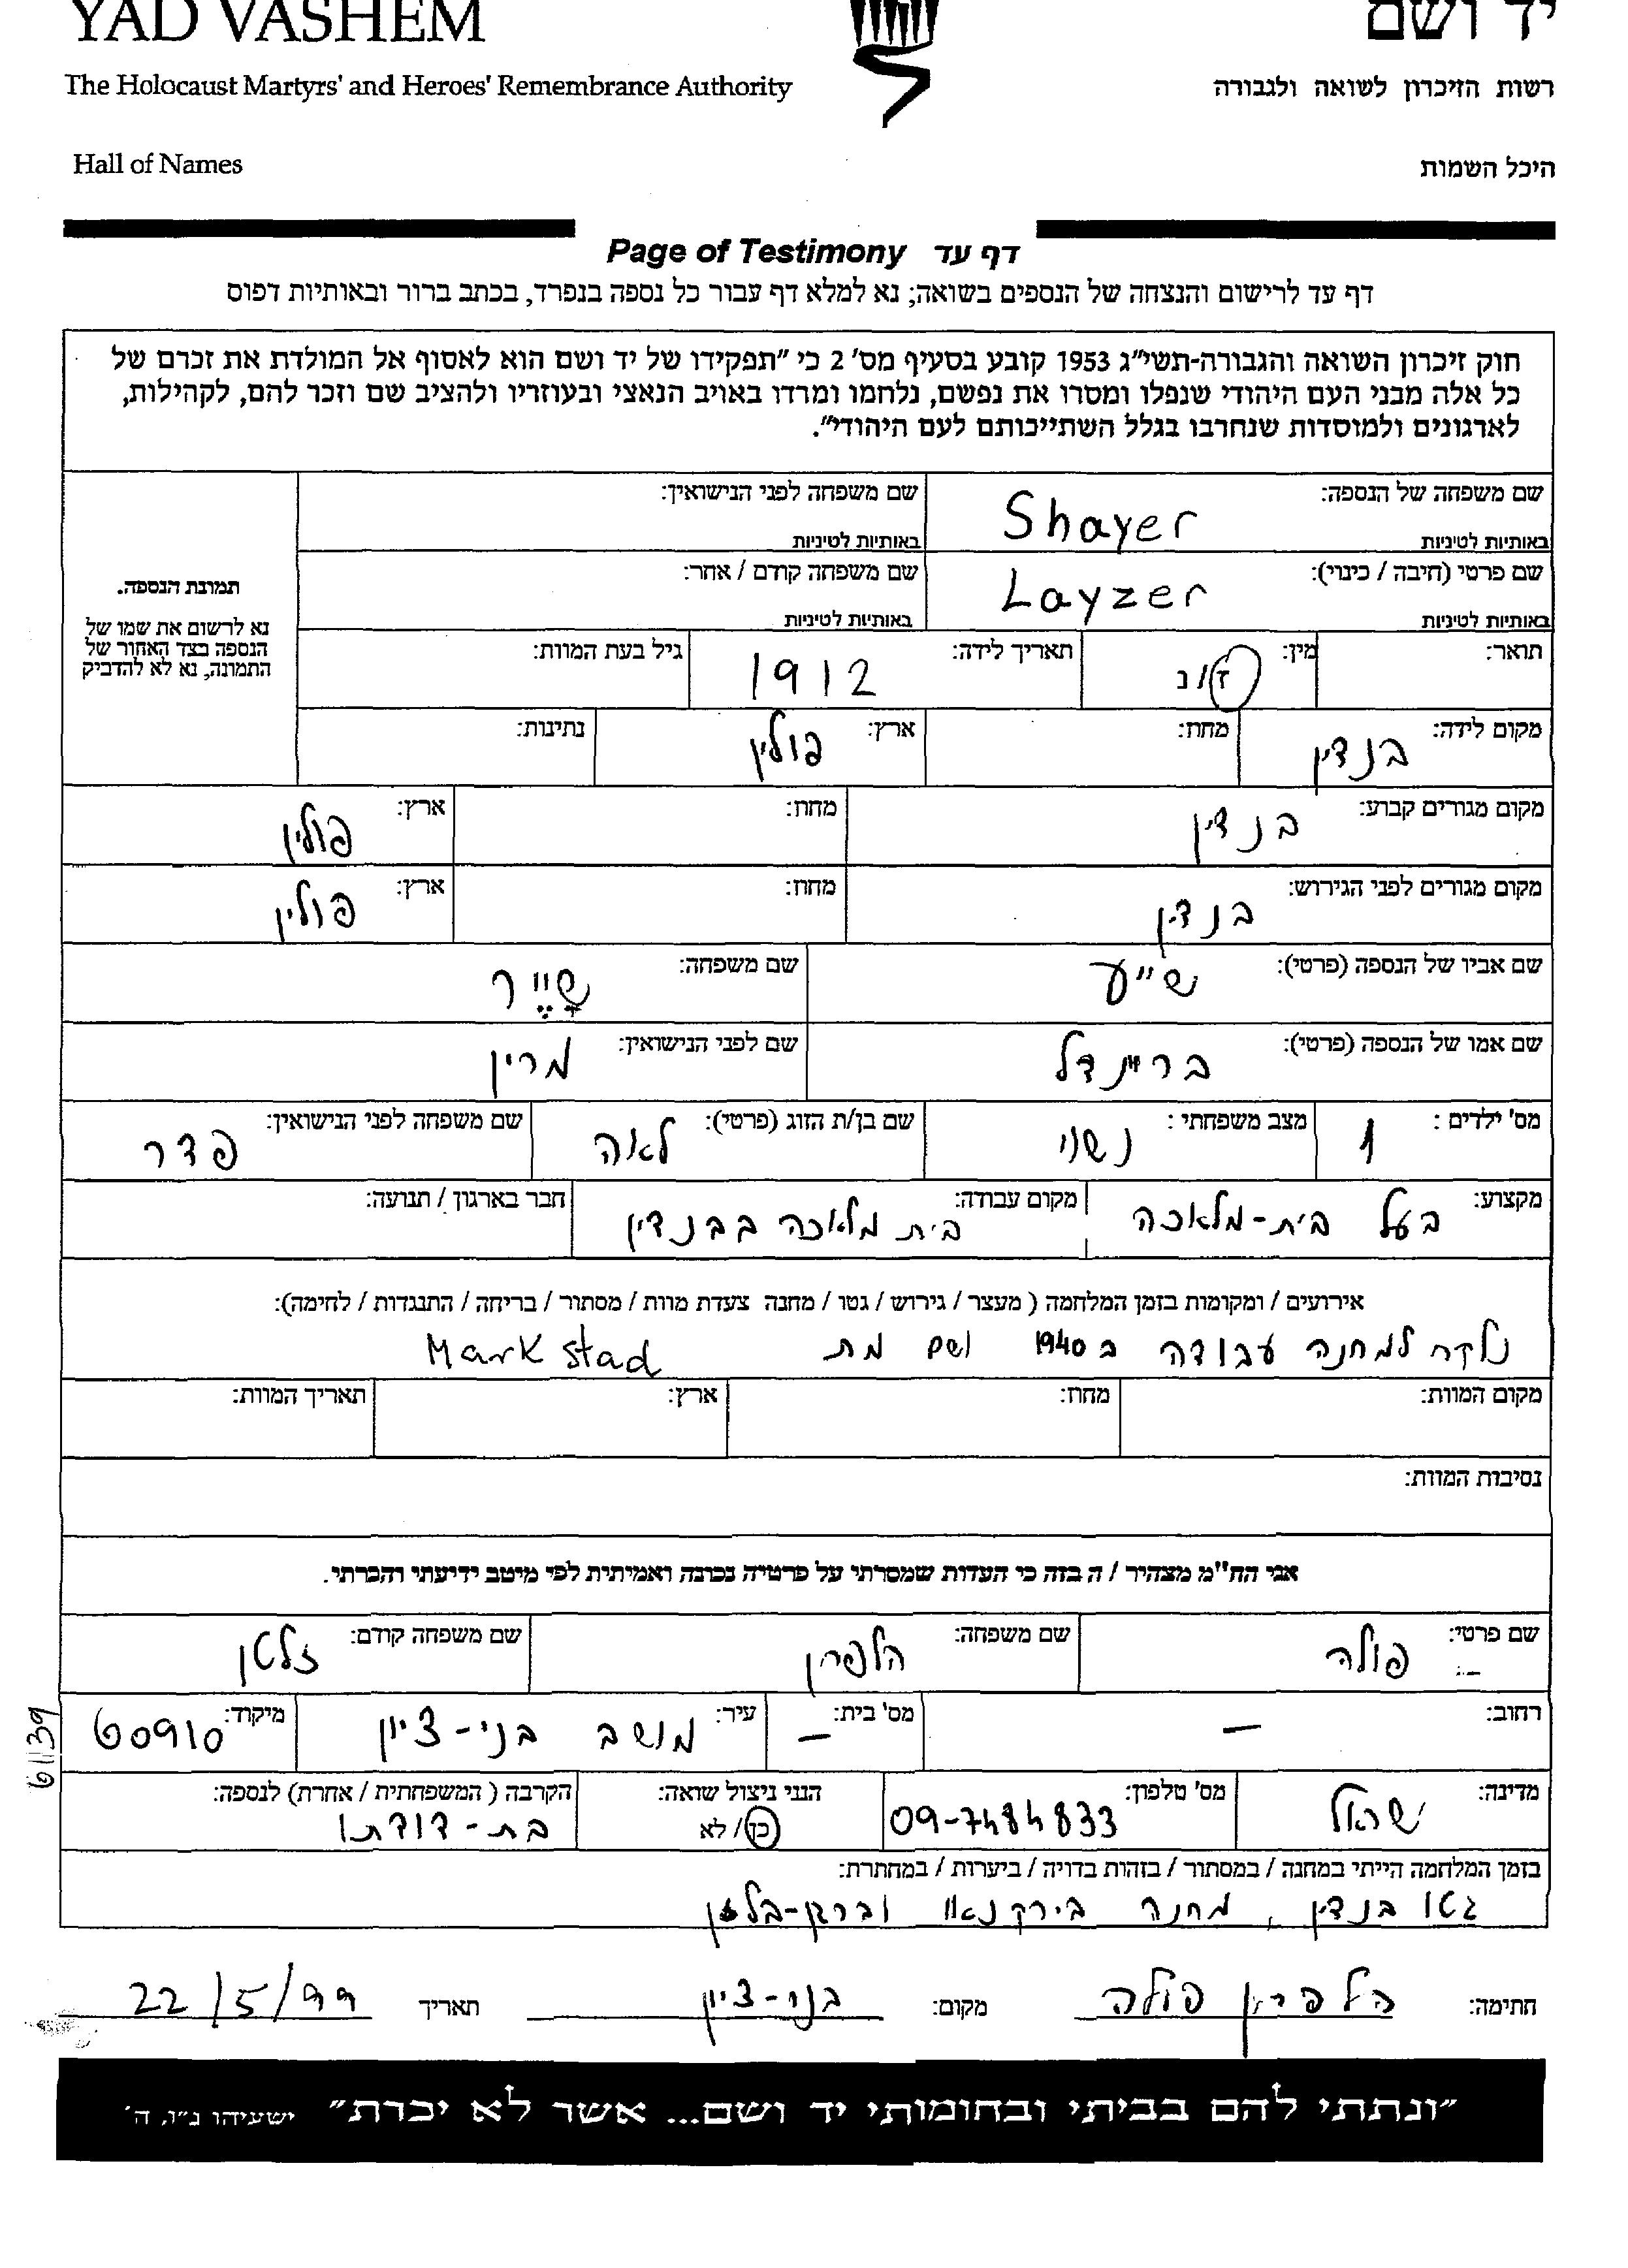 YAD VASHEM יד ושם
The Holocaust Martyrs' and Heroes' Remembrance Authority רשות הזיכרון לשואה ולגבורה
Hall of Names היכל השמות
Page of Testimony דף עד
דף עד לרישום והנצחה של הנספים בשואה; נא למלא דף עבור כל נספה בנפרד, בכתב ברור ובאותיות דפוס
חוק זיכרון השואה והגבורה-תשי"ג 1953 קובע בסעיף מס' 2 כי "תפקידו של יד ושם הוא לאסוף אל המולדת את זכרם של
כל אלה מבני העם היהודי שנפלו ומסרו את נפשם, נלחמו ומרדו באויב הנאצי ובעוזריו ולהציב שם וזכר להם, לקהילות,
לארגונים ולמוסדות שנחרבו בגלל השתייכותם לעם היהודי".
שם משפחה של הנספה: Shayer שם משפחה לפני הנישואין:
באותיות לטיניות באותיות לטיניות
שם פרטי (חיבה / כינוי): Layzer שם משפחה קודם / אחר:
באותיות לטיניות באותיות לטיניות
תמונת הנספה.
נא לרשום את שמו של
הנספה בצד האחור של
התמונה, נא לא להדביק
תואר: מין: ז/נ תאריך לידה: 1912 גיל בעת המוות:
מקום לידה: בנדין מחוז: ארץ: פולין נתינות:
מקום מגורים קבוע: בנדין מחוז: ארץ: פולין
מקום מגורים לפני הגירוש: בנדין מחוז: ארץ: פולין
שם אביו של הנספה (פרטי): שייע שם משפחה: שָיֵיר
שם אמו של הנספה (פרטי): בריינדל שם לפני הנישואין: מרין
מס' ילדים : 1 מצב משפחתי : נשוי שם בן/ת הזוג (פרטי): לאה שם משפחה לפני הנישואין: פדר
מקצוע: בעל בית-מלאכה מקום עבודה: בית מלאכה בבנדין חבר בארגון / תנועה:
אירועים / ומקומות בזמן המלחמה ( מעצר / גירוש / גטו / מחנה צעדת מוות / מסתור / בריחה / התנגדות / לחימה):
נלקח למחנה עבודה ב 1940 ושם מת Mark stad
מקום המוות: מחוז: ארץ: תאריך המוות:
נסיבות המוות:
אני הח"מ מצהיר / ה בזה כי העדות שמסרתי על פרטיה נכונה ואמיתית לפי מיטב ידיעתי והכרתי.
שם פרטי: פולה שם משפחה: הלפרין שם משפחה קודם: זלטן
רחוב: – מס' בית: – עיר: מושב בני-ציון מיקוד: 60910
61139
מדינה: ישראל מס' טלפון: 09-7484833 הנני ניצול שואה: כן / לא הקרבה ( המשפחתית / אחרת) לנספה: בת-דודתו
בזמן המלחמה הייתי במחנה / במסתור / בזהות בדויה / ביערות / במחתרת:
גטו בנדין, מחנה בירקנאו וברגן-בלזן
חתימה: הלפרין פולה מקום: בני-ציון תאריך 22/5/99
"ונתתי להם בביתי ובחומותי יד ושם... אשר לא יכרת" ישעיהו נ"ו, ה'